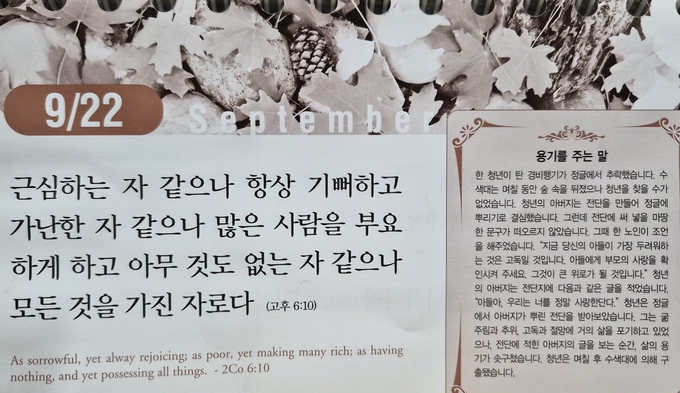 9/22
September
근심하는 자 같으나 항상 기뻐하고
가난한 자 같으나 많은 사람을 부요
하게 하고 아무 것도 없는 자 같으나
모든 것을 가진 자로다 (고후 6:10)
As sorrowful, yet alway rejoicing; as poor, yet making many rich; as having
nothing, and yet possessing all things. - 2Co 6:10
용기를 주는 말
한 청년이 탄 경비행기가 정글에서 추락했습니다. 수
색대는 며칠 동안 숲 속을 뒤졌으나 청년을 찾을 수가
없었습니다. 청년의 아버지는 전단을 만들어 정글에
뿌리기로 결심했습니다. 그런데 전단에 써 넣을 마땅
한 문구가 떠오르지 않았습니다. 그때 한 노인이 조언
을 해주었습니다. "지금 당신의 아들이 가장 두려워하
는 것은 고독일 것입니다. 아들에게 부모의 사랑을 확
인시켜 주세요. 그것이 큰 위로가 될 것입니다." 청년
의 아버지는 전단지에 다음과 같은 글을 적었습니다.
"아들아, 우리는 너를 정말 사랑한단다." 청년은 정글
에서 아버지가 뿌린 전단을 받아보았습니다. 그는 굶
주림과 추위, 고독과 절망에 거의 삶을 포기하고 있었
으나, 전단에 적힌 아버지의 글을 보는 순간, 삶의 용
기가 솟구쳤습니다. 청년은 며칠 후 수색대에 의해 구
출됐습니다.